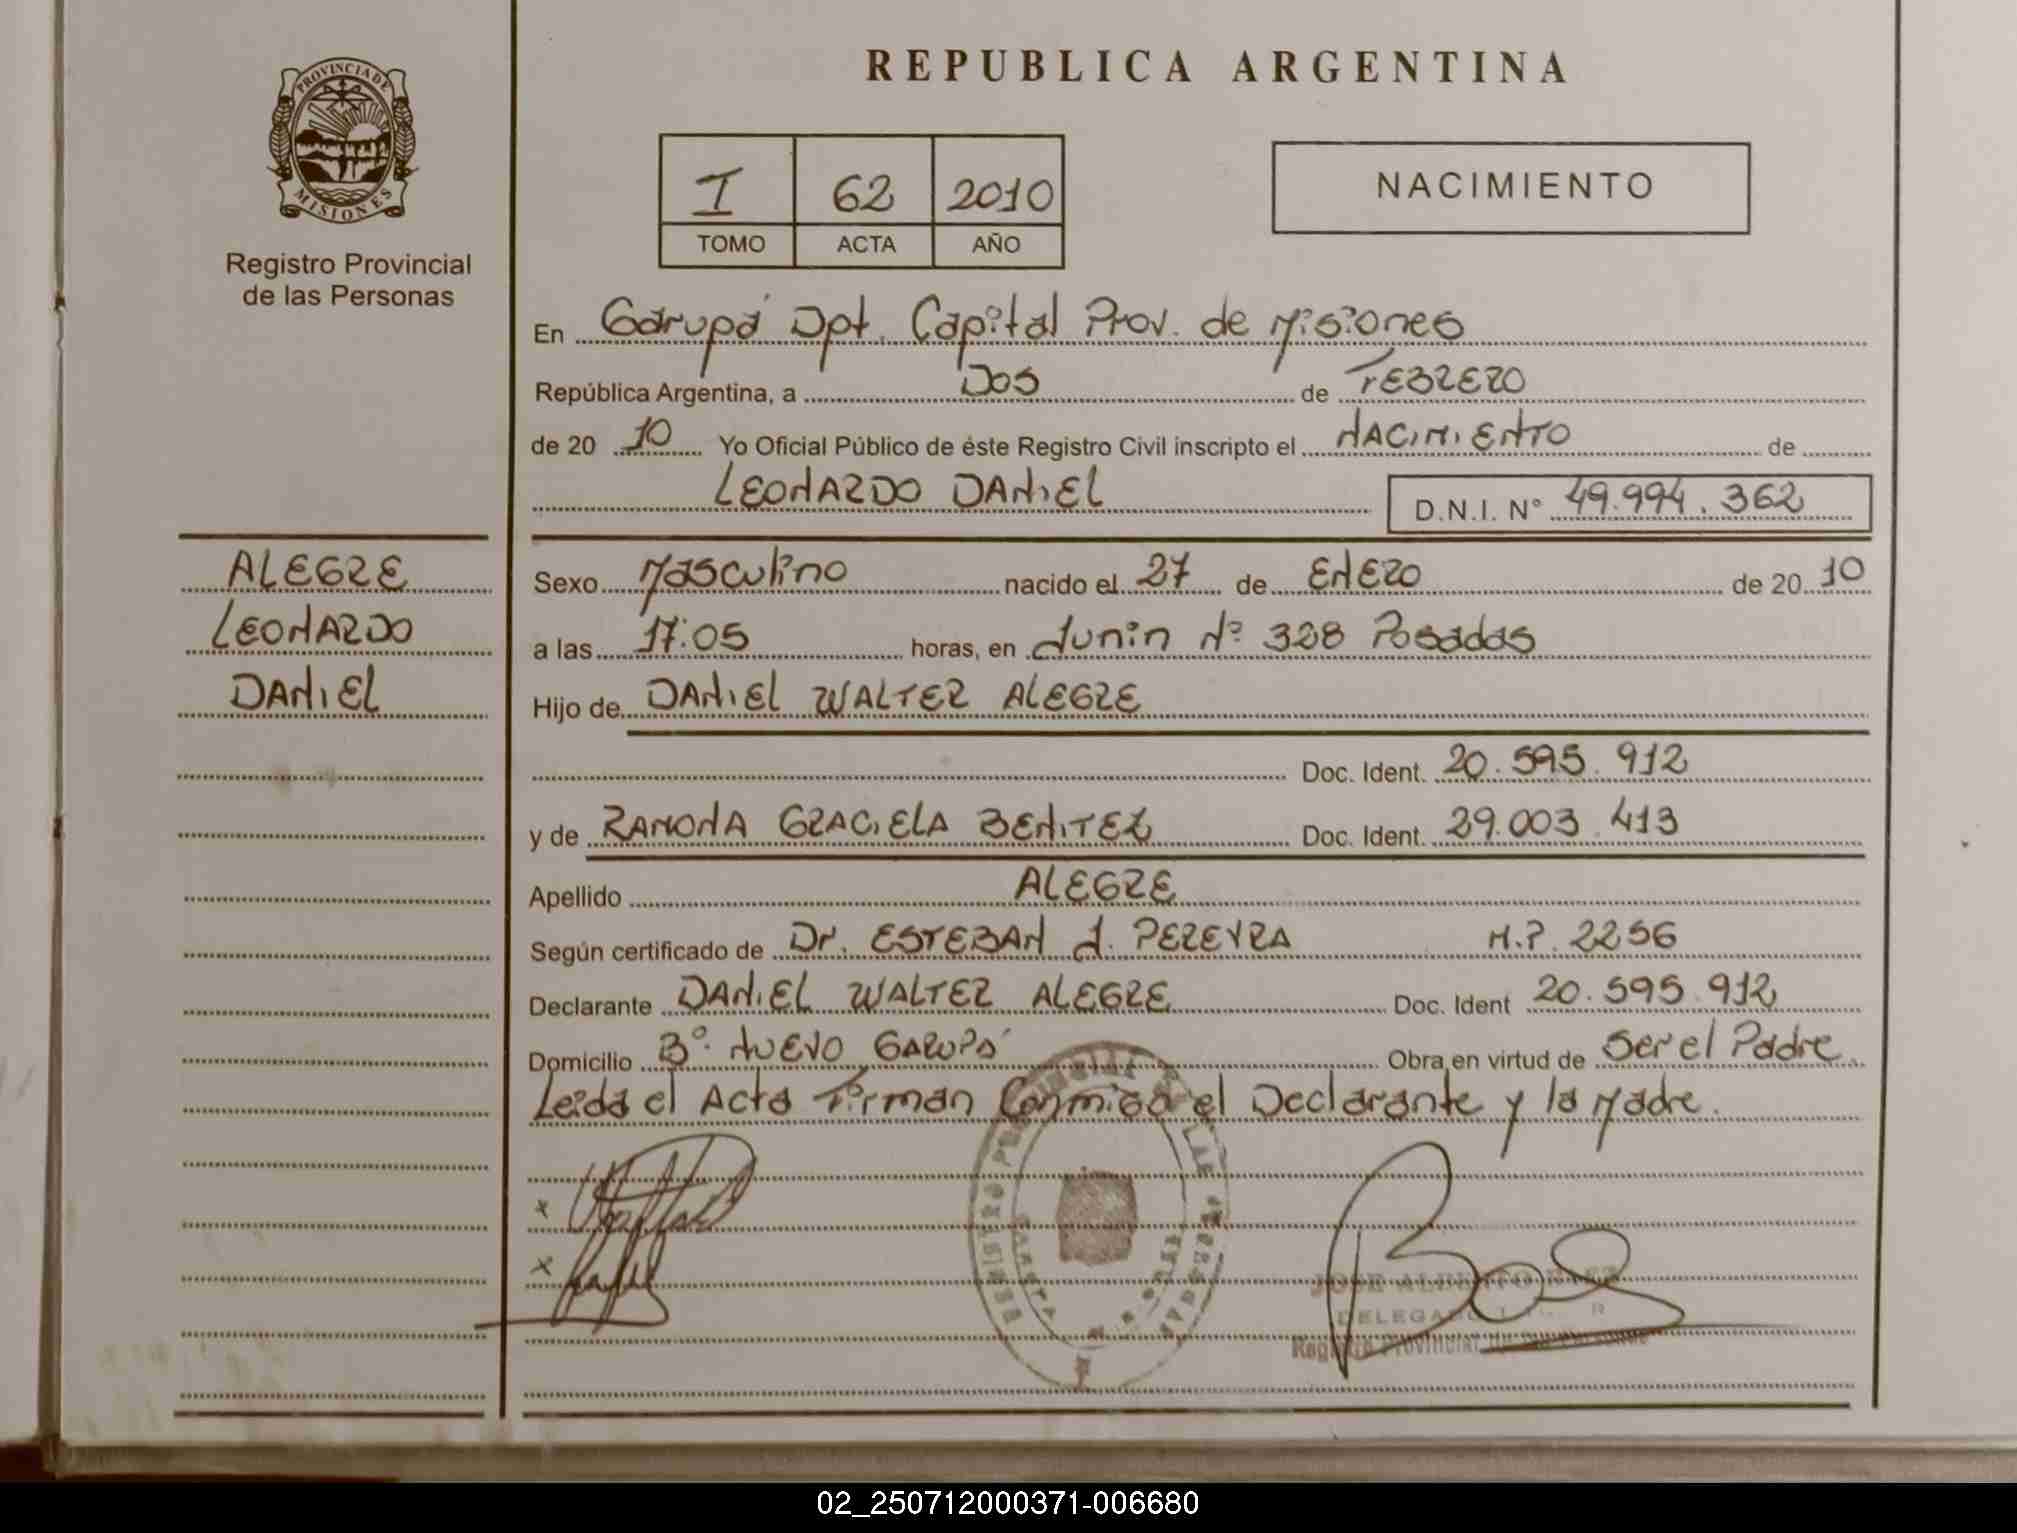 REPUBLICA ARGENTINA
PROVINCIA DE
MISIONES
Registro Provincial
de las Personas
I 62 2010
TOMO ACTA AÑO
NACIMIENTO
En Garupá Dpt. Capital Prov. de Misiones
República Argentina, a Dos de FEBRERO
de 20 10 Yo Oficial Público de éste Registro Civil inscripto el NACIMIENTO de
LEONARDO DANIEL D.N.I. N° 49.994.362
ALEGRE
LEONARDO
DANIEL
Sexo Masculino nacido el 27 de ENERO de 20 10
a las 17:05 horas, en Junin N° 328 Posadas
Hijo de DANIEL WALTER ALEGRE
Doc. Ident. 20.595.912
y de RAMONA GRACIELA BENITEZ Doc. Ident. 29.003.413
Apellido ALEGRE
Según certificado de Dr. ESTEBAN J. PEREYRA M.P. 2256
Declarante DANIEL WALTER ALEGRE Doc. Ident 20.595.912
Domicilio B° NUEVO GARUPÁ Obra en virtud de Ser el Padre
Leida el Acta Firman Conmigo el Declarante y la Madre.
x
x
JOSE ALBERTO
DELEGADO
Registro Provincial de las Personas
02_250712000371-006680